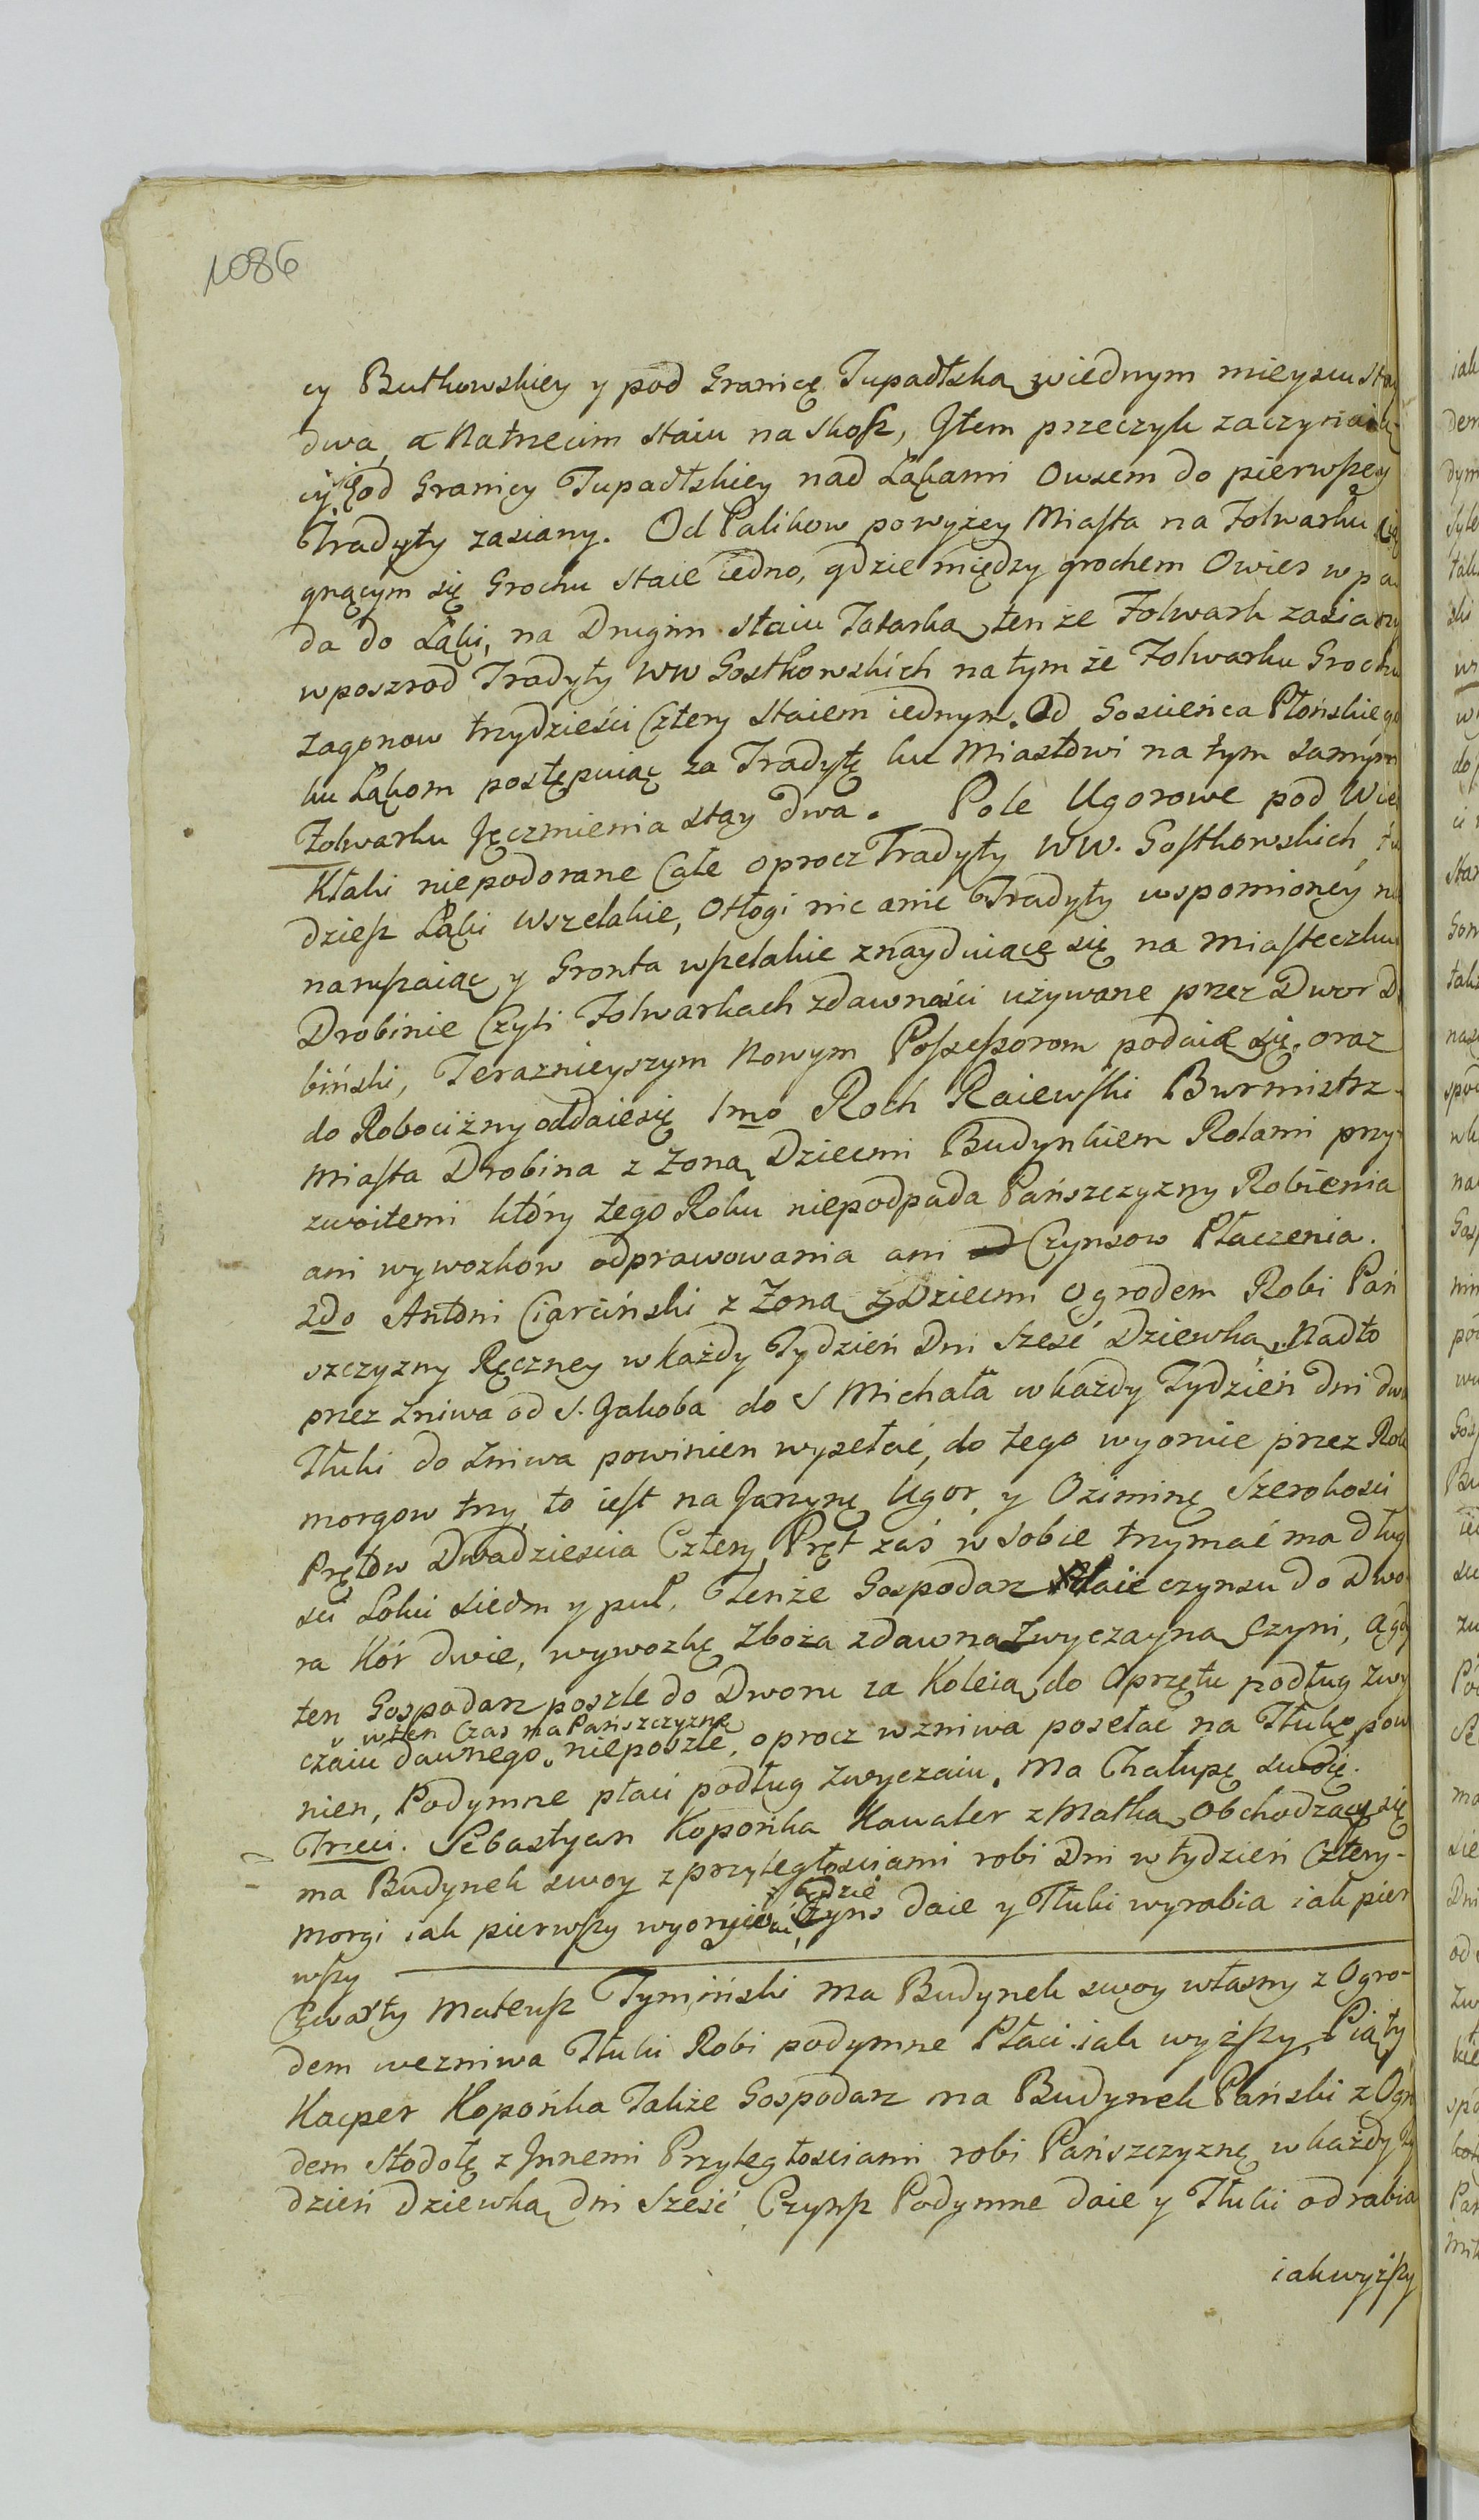 1086
cy Butkowskiey y pod Granicę Tupadłską wiednym mieyscu sta
dwa, a Natrzecim staiu na skosz, Item przeczyk zaczynaią
cy się od Granicy Tupadłskiey nad Łąkami Owsem do pierwszey
Tradyty zasiany. Od Palikow powyżey Miasta na Folwarku cią
gnącym się Grochu staie iedno, gdzie między grochem Owies wpa
da do Łąki, na Drugim staiu Tatarką tenże Folwark zasiany
wposzrod Tradyty WW Gostkowskich natymże Folwarku Grochu
zagonow trzydzieści Cztery staiem iednym. Od Gosciенca Płońskiego
ku Łąkom postępuiąc za Tradytę ku Miastowi na tym samym
Folwarku Jęczmienia stay dwa. Pole Ugorowe pod Wie
Kłaki niepodorane Całe oprocz Tradyty WW. Gostkowskich, tu
dziesz Łąki Wszelakie, Otłogi nic a nic Tradyty wspomioney nie
naruszaiąc y Gronta wszelakie znayduiącę się na Miasteczku
Drobinie Czyli Folwarkach zdawności uzywane przez Dwor Dro
biński, Teraznieyszym Nowym Possessorom podaią się. oraz
do Robocizny oddaiesię 1mo Roch Raiewski Burmistrz
Miasta Drobina z Zoną Dziecmi Budynkiem Rolami przy
zwoitemi który tego Roku niepodpada Pańszczyzny Robienia
ani wywozkow odprawowania ani od Czynsow Płaczenia.
2do Antoni Ciarciński z Zoną z Dziecmi Ogrodem Robi Pań
szczyzny Ręczney wkażdy Tydzień Dni Szesć Dziewką. Nadto
przez Zniwa od S. Jakoba do S Michała wkażdy Tydzień dni dwa
Tłuki do Zniwa powinien wysełać, do tego wyoruie przez Rok
morgow trzy, to iest na Jarzynę Ugor, y Oziminę Szerokosci
Prętow Dwadziescia Cztery, Pręt zaś w sobie trzymać ma dług
sci Łokci siedm y puł, Tenże Gospodarz Płaie czynsu do Dwo
ra Kór dwie, wywozkę Zboża zdawna Zwyczayną Czyni, a gdy
ten Gospodarz poszle do Dworu za Koleią do Oprzętu podług zwy
wten Czas na Pańszczyznę
czaiu dawnego nieposzle, oprocz wzniwa posełać na Tłukę pow
nien, Podymne płaci podług Zwyczaiu. Ma Chałupę swoię.
Trzeci. Sebastyan Kopońka Kawaler z Matką Obchodzący się
ma Budynek swoy z przyległosciami robi Dni wtydzień Cztery
morgi iak pierwszy wyorywać będzie Czyns daie y Tłuki wyrabia iak pier
wszy
Czwarty Mateusz Tymiński Ma Budynek swoy własny z Ogro-
dem wezniwa Tłuki Robi podymne Płaci iak wyższy, Piąty
Kacper Kopońka Także Gospodarz ma Budynek Pański z Ogro
dem Stodołę z Innemi Przyległosciami robi Pańszczyznę wkażdy Ty
dzień Dziewką dni Szesć, Czynsz Podymne daie y Tłuki odrabia
iak wyższy